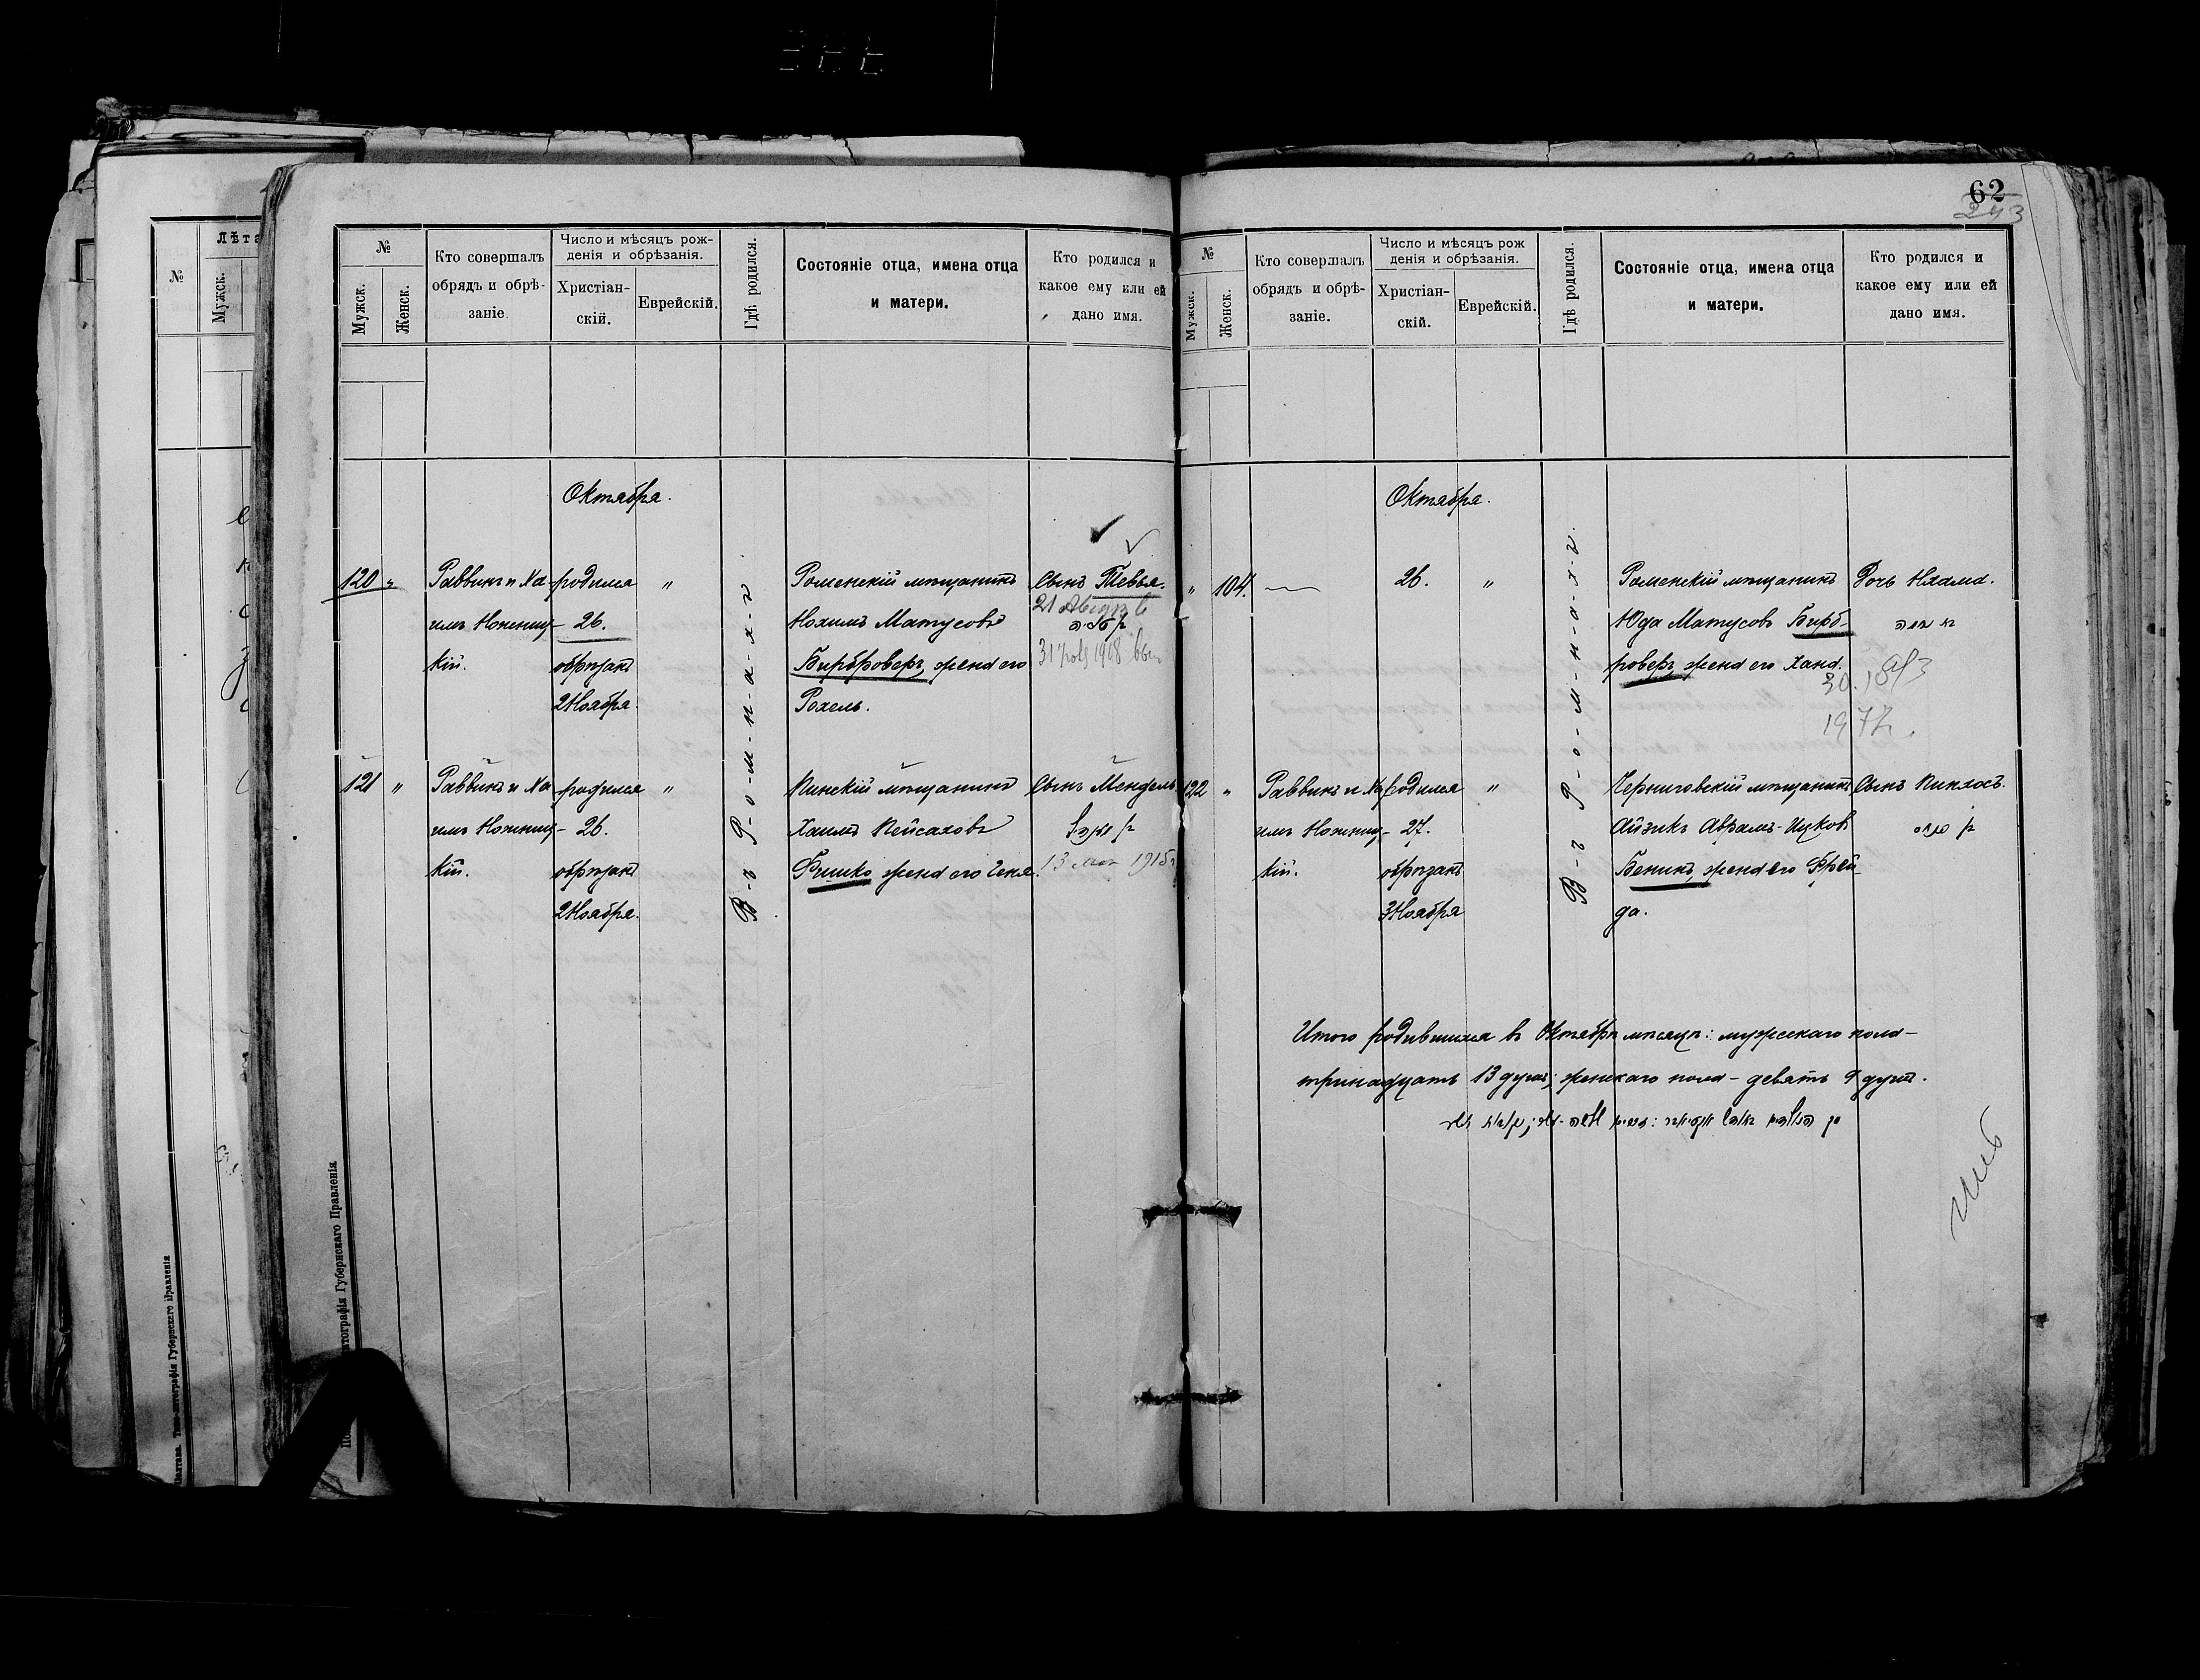 62
243
№
Мужск.
Женск.
Кто совершалъ
обрядъ и обрѣ-
заніе.
Число и мѣсяцъ рож-
денія и обрѣзанія.
Христіан-
скій.
Еврейскій.
Гдѣ родился.
Состояніе отца, имена отца
и матери.
Кто родился и
какое ему или ей
дано имя.
Октября.
120 "
Раввинъ и Ха-
имъ Ножениц-
кій.
родился
26.
обрѣзанъ
2 Ноября.
"
В-ъ Р-о-м-н-а-х-ъ
Роменскій мѣщанинъ
Нохимъ Матусовъ
Бирброверъ, жена его
Рохель.
Сынъ Тевья.
121 "
Раввинъ и Ха-
имъ Ножениц-
кій.
родился
26.
обрѣзанъ
2 Ноября.
"
Пинскій мѣщанинъ
Хаимъ Пейсаховъ
Фишко жена его Геня.
Сынъ Мендель
1915
№
Мужск.
Женск.
Кто совершалъ
обрядъ и обрѣ-
заніе.
Число и мѣсяцъ рож
денія и обрѣзанія.
Христіан-
скій.
Еврейскій.
Гдѣ родился.
Состояніе отца, имена отца
и матери.
Кто родился и
какое ему или ей
дано имя.
Октября.
" 104.
26.
"
В-ъ Р-о-м-н-а-х-ъ.
Роменскій мѣщанинъ
Юда Матусовъ Бирб-
роверъ, жена его Хана.
Дочь Нехама.
122 "
Раввинъ и Ха-
имъ Ножениц-
кій.
родился
27.
обрѣзанъ
3 Ноября
"
Черниговскій мѣщанинъ
Айзикъ Абрамъ-Ицковъ
Беникъ, жена его Фрей-
да.
Сынъ Пинхосъ.
Итого родившихся въ Октябрѣ мѣсяцѣ: мужескаго пола –
тринадцать 13 душъ; женскаго пола – девять 9 душъ.
№
Лѣта
Мужск.
Типо-литографія Губернскаго Правленія